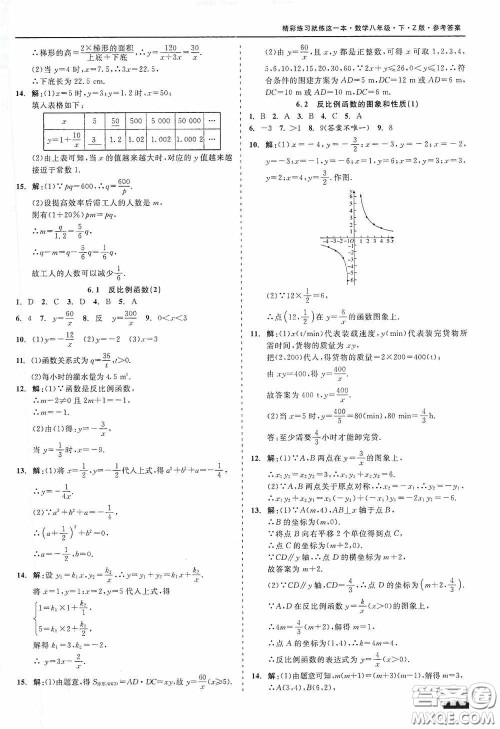 精彩练习就练这一本·数学八年级·下·Z版·参考答案
∴梯形的高=2×梯形的面积/上底+下底, ∴y=60/(x+x/3)=45/x.
(2)当高为4时, x=7.5, 3x=22.5.
∴下底长为22.5 cm.
14. 解:(1)x=5时, y=3; x=50时, y=1.2.
填入表格如下:
x 5 50 500 5 000 50 000 …
y=1+10/x 3 1.2 1.02 1.002 1.000 2 …
(2)由上表可知,当x的值越来越大时,对应的y值越来越
接近于常数1.
15. 解:(1)∵pq=600, ∴q=600/p.
(2)设提高效率后需工人的人数为m,
则有(1+20%)pm=pq,
∴m=q/1.2=5/6q
∴q-m=q-5/6q=1/6q.
故工人的人数可以减少1/6.
6.1 反比例函数(2)
1. D 2. C 3. D 4. B 5. A
6. 4 7. y=60/x 8. 反 y=300/x 9. 0<x<3
10. (1)y=-12/x (2)y=-2 (3)x=3
11. (1)函数关系式为q=36/t, t>0.
(2)每小时的灌水量为4.5 m³.
12. 解:(1)∵函数是反比例函数,
∴m-2≠0且2m+1=-1.
∴m=-1.
(2)由(1)得:y=-3/x,
当y=1/3时, x=-9.
13. 解:(1)将x=1/2, y=-1/2代入上式,得a²+b²+a=-1/4,
∴y=-1/4x.
(2)∵a²+b²+a=-1/4,
∴(a+1/2)²+b²=0.
∴a=-1/2, b=0.
14. 解:设y₁=k₁x, y₂=k₂/x, ∴y=y₁+y₂=k₁x+k₂/x.
将x=1, y=1; x=2, y=5代入上式,得
1=k₁×1+k₂/1,
5=k₁×2+k₂/2.
∴y=3x-2/x.
15. 解:(1)由题意,得S矩形ABCD=AD·DC=xy, 故y=60/x(x≥5).
(2)由y=60/x,且x,y都为正整数,x可取1,2,3,4,
5,6,10,12,15,20,30,60.
但∵2x+y≤26,x≥5,0<y≤12,∴符合
条件的围建方案为:AD=5 m,DC=12 m或AD=6 m,
DC=10 m或AD=10 m,DC=6 m.
6.2 反比例函数的图象和性质(1)
1. B 2. A 3. C 4. C 5. A
6. -3 7. >1 8. 9(答案不唯一) 9. 8
10. 解:(1)x=-4, y=-3/2; x=-3, y=-2; x=-2,
y=-3; x=-1, y=-6; x=1, y=6; x=2, y=3; x=3,
y=2; x=4, y=3/2.作图.
(2)∵12×1/2=6,
∴点(12,1/2)在y=6/x的函数图象上.
11. 解:(1)x(t/min)代表装载速度,y(min)代表装完货物所
需时间,货物的质量为xy,
把(2,200)代入,得xy=2×200=400(t);
由xy=400,得y=400/x.
故答案为400 t, y=400/x.
(2)当x=5时, y=400/5=80(min), 80 min=4/3 h.
答:至少需要4/3小时才能卸完货.
12. 解:(1)∵A,B两点在y=6/x的图象上,
∴x₁y₁=x₂y₂=6, ∴x₁y₁+x₂y₂=6+6=12.
(2)∵A,B两点关于原点对称, ∴x₂=-x₁, y₂=-y₁.
∴x₁y₂+x₂y₁=x₁(-y₁)+(-x₁)y₁=-6-6=-12.
13. 解:(1)∵A(m,4), AB⊥x轴于点B,
∴B的坐标为(m,0).
∵将点B向右平移2个单位得到点C,
∴点C的坐标为(m+2,0).
∵CD∥y轴, ∴点D的横坐标为m+2.
故答案为m+2.
(2)∵CD∥y轴, CD=4/3, ∴点D的坐标为(m+2,4/3).
∵A,D在反比例函数y=k/x(x>0)的图象上,
∴4m=4/3(m+2),解得m=1.
∴点A的坐标为(1,4), ∴k=4m=4.
∴反比例函数的表达式为y=4/x(x>0).
14. 解:(1)由题意可知,m(m+1)=(m+3)(m-1),解得m=3,
∴A(3,4), B(6,2),